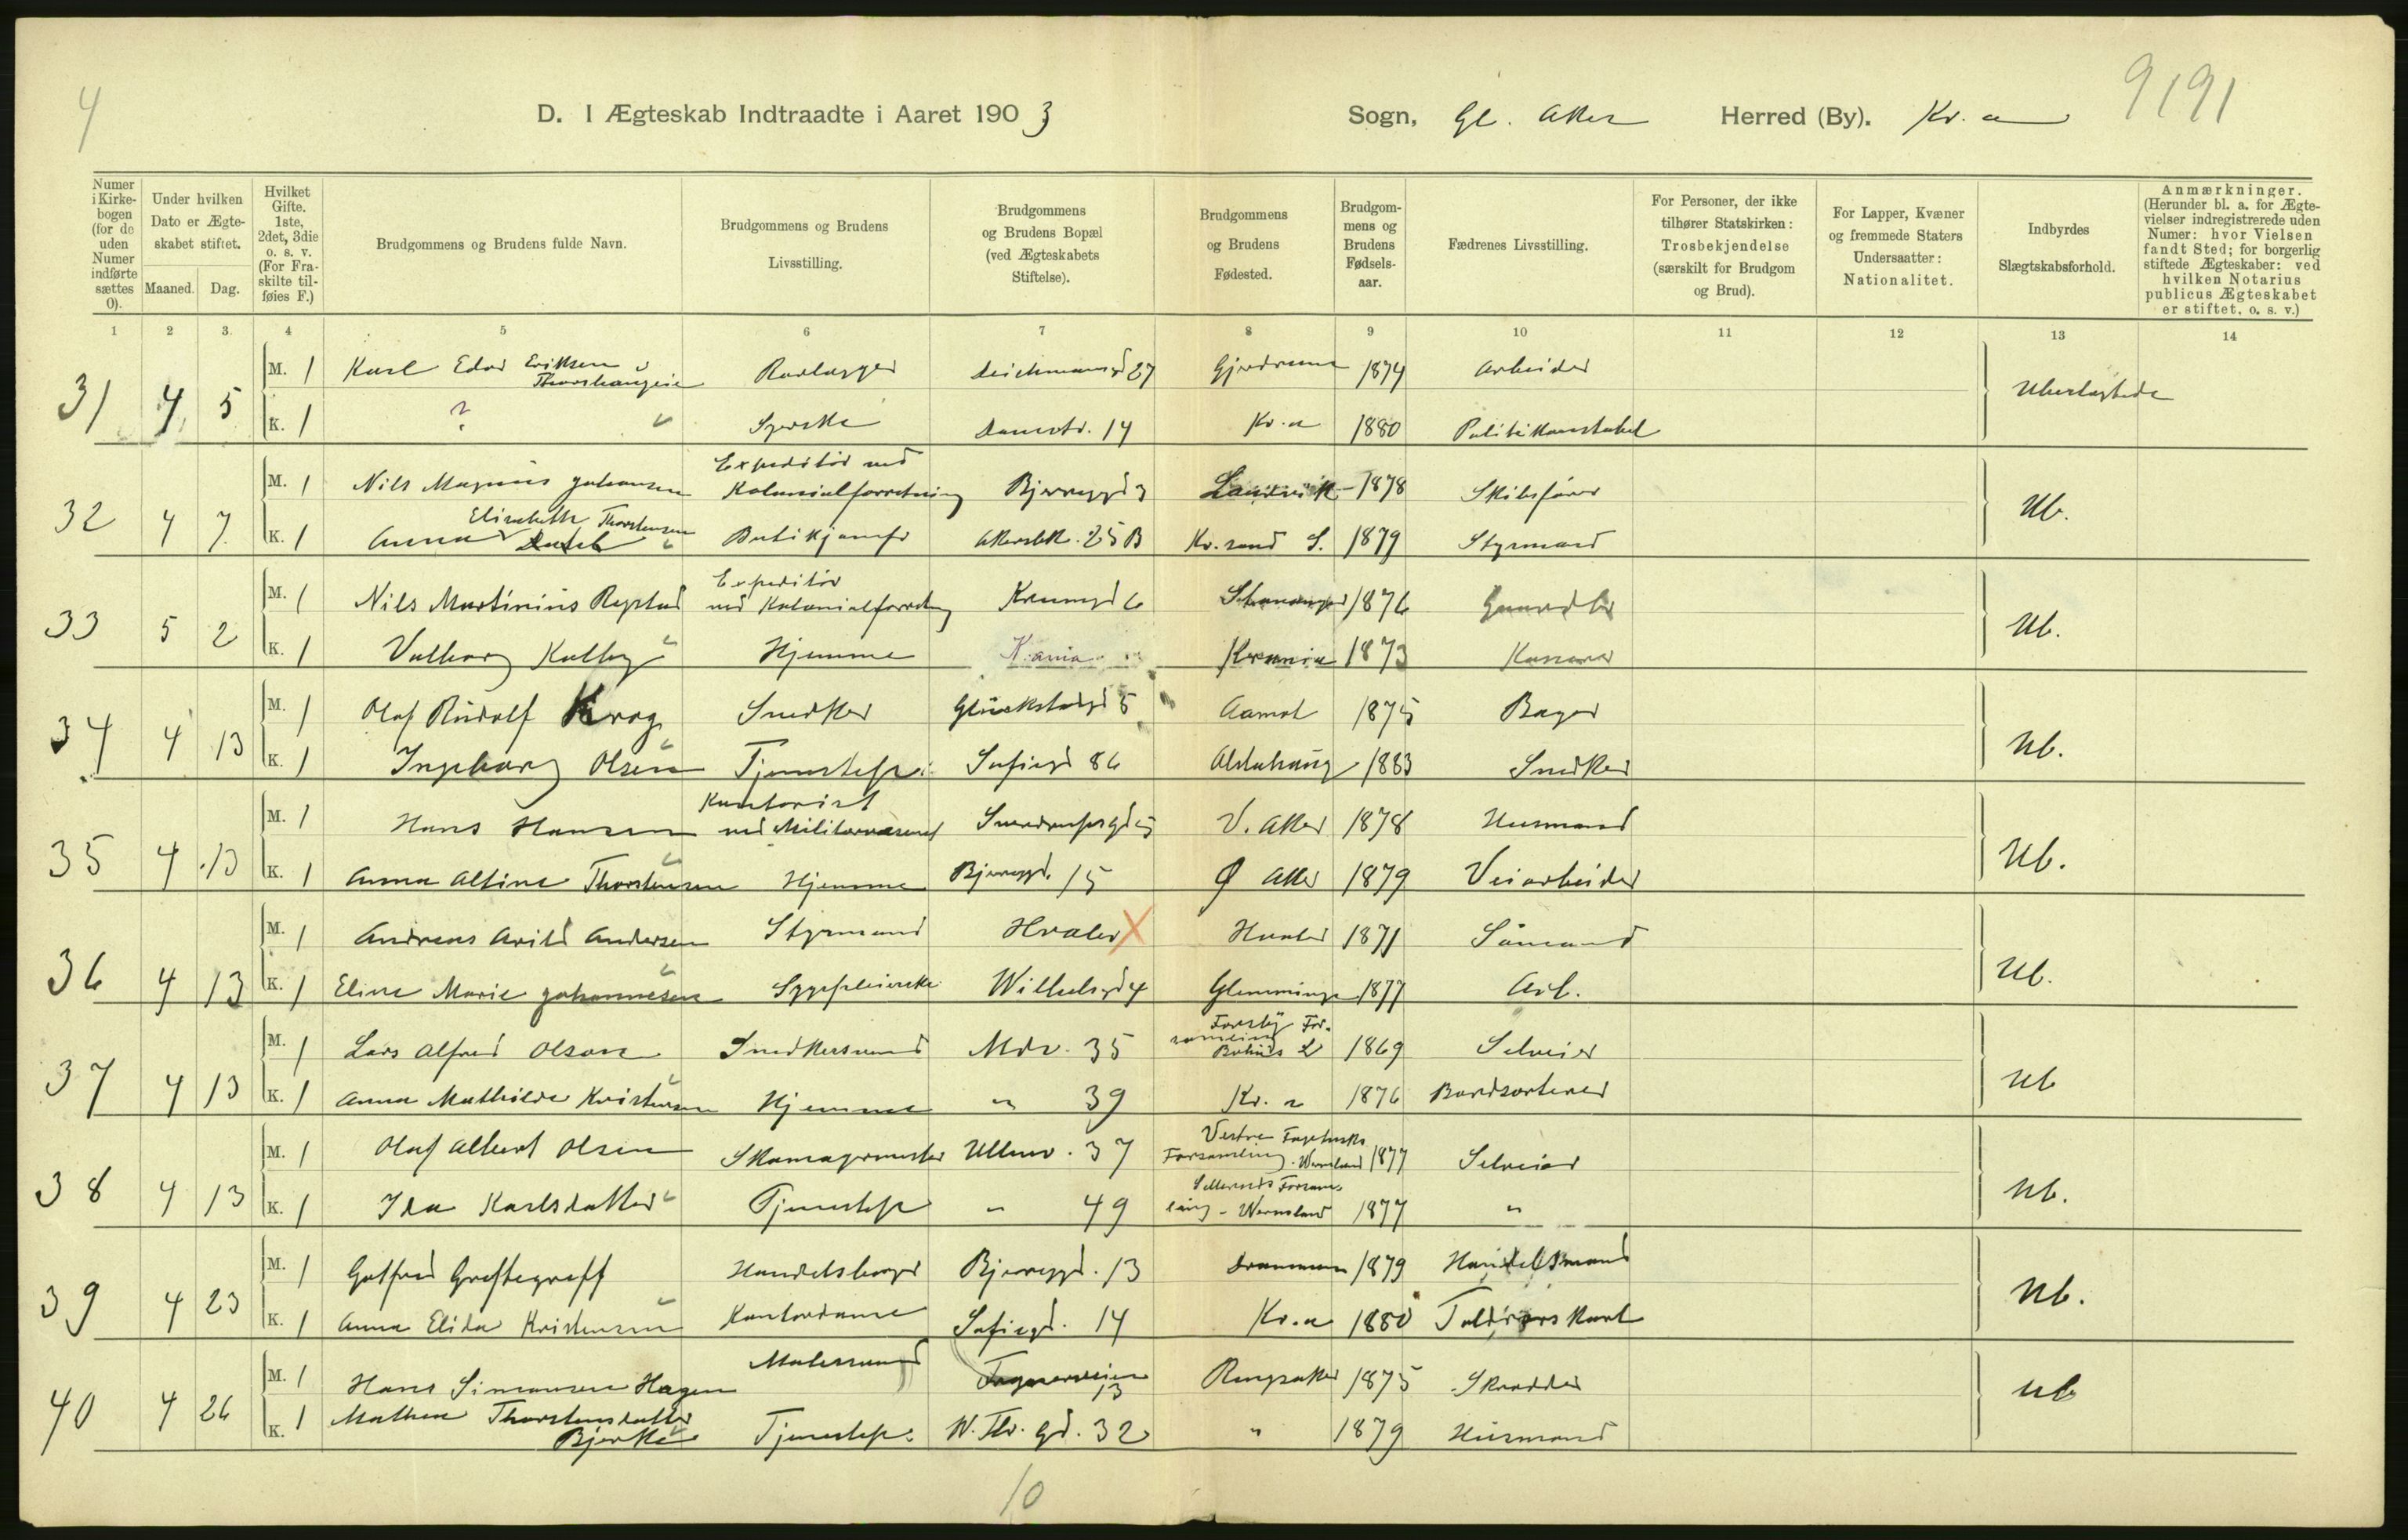 4
D. I Ægteskab Indtraadte i Aaret 1903 Sogn, Gl. Aker Herred (By). Kr.a
9191
Numer i Kirkebogen (for de uden Numer indførte sættes 0).
Under hvilken Dato er Ægteskabet stiftet.
Maaned. Dag.
Hvilket Gifte. 1ste, 2det, 3die o. s. v. (For Fraskilte tilføies F.)
Brudgommens og Brudens fulde Navn.
Brudgommens og Brudens Livsstilling.
Brudgommens og Brudens Bopæl (ved Ægteskabets Stiftelse).
Brudgommens og Brudens Fødested.
Brudgommens og Brudens Fødselsaar.
Fædrenes Livsstilling.
For Personer, der ikke tilhører Statskirken: Trosbekjendelse (særskilt for Brudgom og Brud).
For Lapper, Kvæner og fremmede Staters Undersaatter: Nationalitet.
Indbyrdes Slægtskabsforhold.
Anmærkninger. (Herunder bl. a. for Ægtevielser indregistrerede uden Numer: hvor Vielsen fandt Sted; for borgerlig stiftede Ægteskaber: ved hvilken Notarius publicus Ægteskabet er stiftet, o. s. v.)
1 2 3 4 5 6 7 8 9 10 11 12 13 14
31 4 5 M. 1 Karl Edvd Eriksen Rørlægger Deichmansgd 27 Gjerdrum 1874 Arbeider Ubeslægtede
K. 1 ? Syerske Damstr. 14 Kr.a 1880 Politikonstabel
32 4 7 M. 1 Nils Magnus Johansen Expeditør ved Kolonialforretning Bjerregd 3 Landvik 1878 Skibsfører Ub.
K. 1 Anna Elisabeth Thorstensen Butikjomfr Akersbk. 25 B Kr.sand S. 1879 Styrmand
33 5 2 M. 1 Nils Martinius Repstad Expeditør ved Kolonialforretng Stavanger 1876 Gaardbr Ub.
K. 1 Valborg Kalby Hjemme K.ania Kr.ania 1873
34 4 13 M. 1 Olaf Rudolf Krog Snedker Glückstadgd 5 Aamot 1875 Bager Ub.
K. 1 Ingeborg Olsen Tjenestepi. Sofiegd 86 Alstahaug 1883 Snedker
35 4 13 M. 1 Hans Hansen Kontorist ved Militærvæsenet Sverdrupsgd 5 V. Aker 1878 Husmand Ub.
K. 1 Anna Altine Thorstensen Hjemme Bjerregd. 15 Ø Aker 1879 Veiarbeider
36 4 13 M. 1 Andreas Arild Andersen Styrmand Hvaler X Hvaler 1871 Sømand Ub.
K. 1 Eline Marie Johannesen Sygepleierske Wilhelsgd 4 Glemminge 1877 Arb.
37 4 13 M. 1 Lars Alfred Olson Snedkersvend Mdv. 35 Foresby Forsamling Bohus L 1869 Selveier Ub
K. 1 Anna Mathilde Kristensen Hjemme " 39 Kr. a 1876 Bordsorterer
38 4 13 M. 1 Olaf Albert Olsen Skomagermester Ullevv. 37 Vestre Forsamling. Wermland 1877 Selveier Ub.
K. 1 Ida Karlsdatter Tjenestep " 49 Forsamling - Wermland 1877 "
39 4 23 M. 1 Gotfred Greftegreff Handelsborger Bjerregd. 13 Drammen 1879 Handelsmand Ub.
K. 1 Anna Elida Kristensen Kontordame Sofiegd. 14 Kr.a 1880
40 4 26 M. 1 Hans Simonsen Hagen Malersvend Fagerveien 13 Ringsaker 1875 Skrædder Ub
K. 1 Mathea Thorstensdatter Bjerke Tjenestep. W. Thr. gd. 32 " 1879 Husmand
10